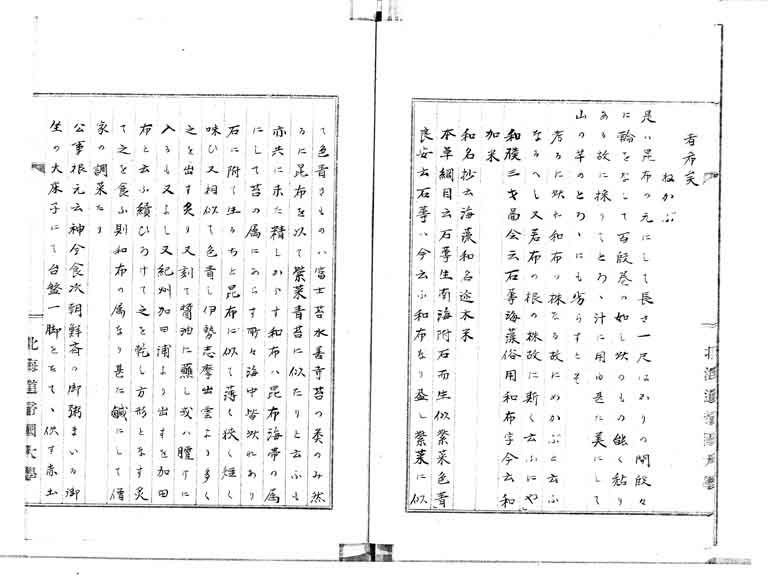 ねかぶ
是ハ昆布の元にして長さ一尺はかりの間段々
に輪をなして百段巻の如し此のもの能く粘り
ある故に採りてとろゝ汁に用ゆ甚に美にして
山の芋のとろゝにも劣らすとそ
考るに此ハ和布の株たる故にめかぶと云ふ
なるへし又若布の根の株故に斯く云ふにや
和漢三才圖会云石蓴海藻俗用和布字今云和
加米
和名抄云海藻和名迩木米
本草綱目云石蓴生南海附石而生似紫菜色青
良安云石蓴ハ今云ふ和布なり盖し紫菜に似
て色青きものハ富士苔水善寺苔の类のみ然
るに昆布を以て紫菜青苔に似たりと云ふも
亦共に未た精しからす和布ハ昆布海帯の属
にして苔の属にあらす所々海中皆此れあり
石に附て生るちと昆布に似て薄く狭く短く
味ひ又相似て色青し伊勢志摩出雲より多く
之を出す炙り又刻て醤油に蘸し或ハ膾けに
入るも又よし又紀州加田浦より出すを加田
布と云ふ續ひろけて之を乾し方形となす炙
て之を食ふ則和布の属なり甚た鹹にして僧
家の調菜たり
公事根元云神今食次朝鮮斎の御粥まいる御
生の大床子にて台盤一脚とたてゝ供す赤土
北海道帝國大學